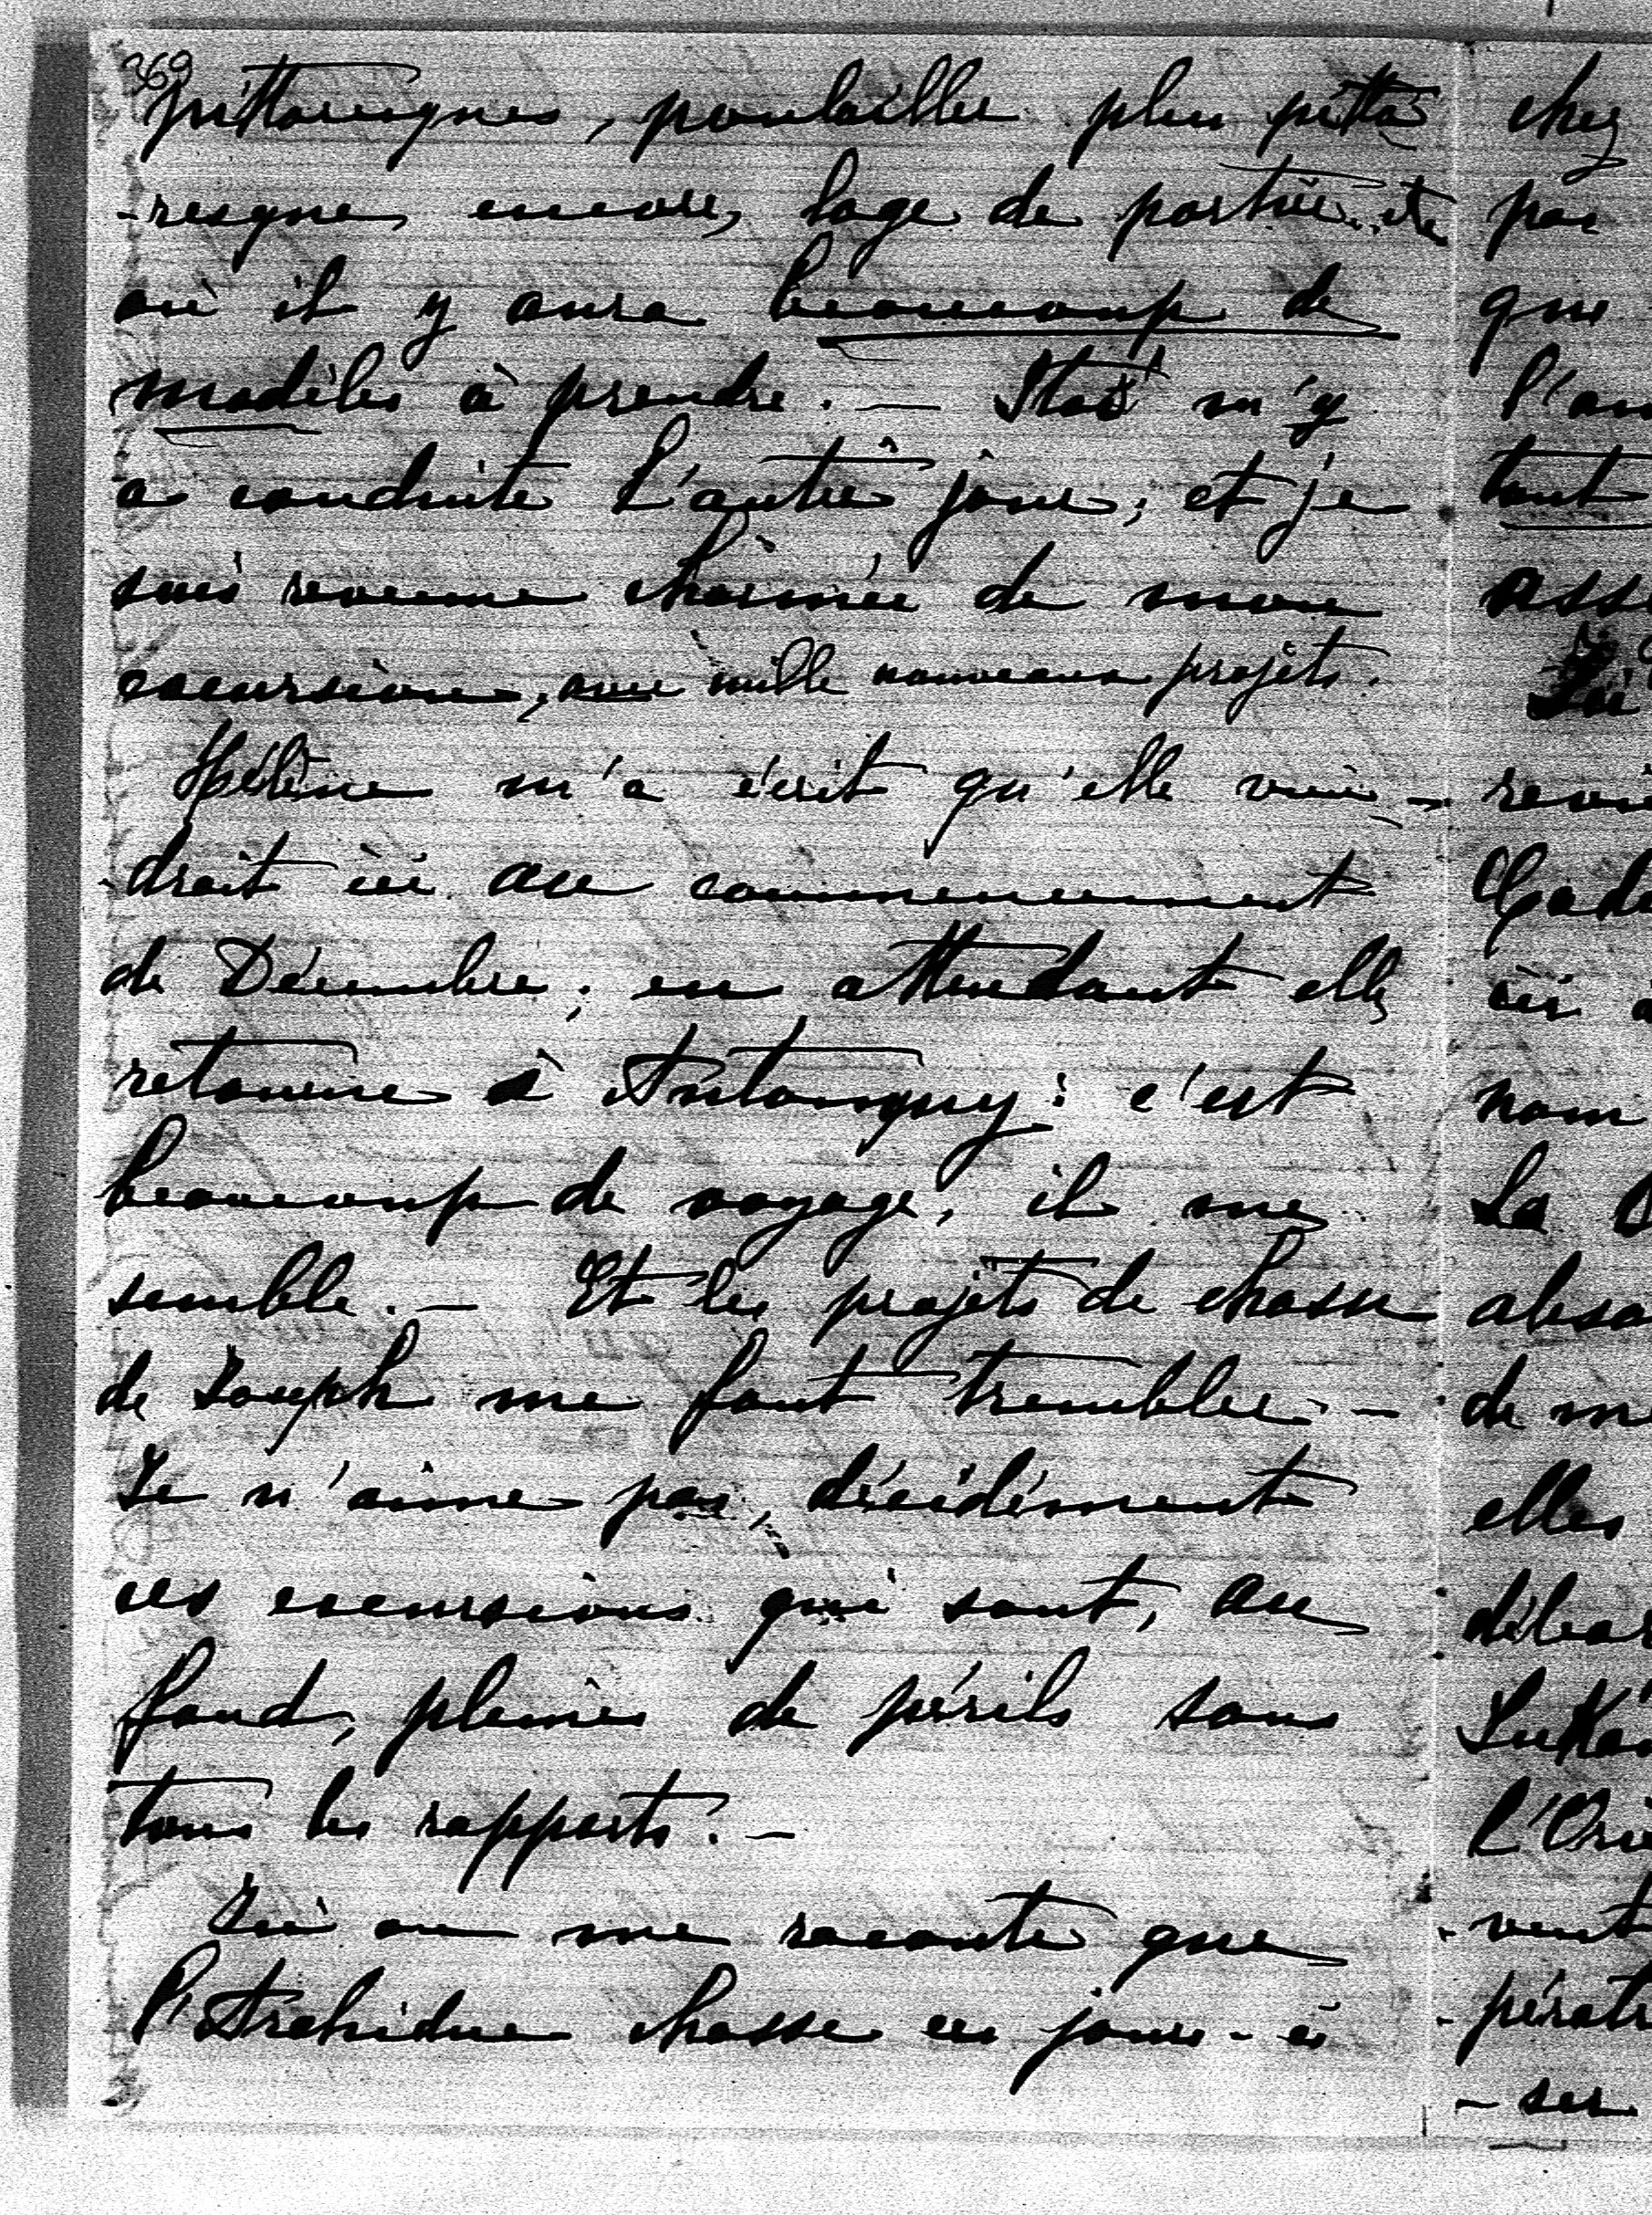 369
pittoresques, poulailler plus pitto
-resque encore, loge de portier, etc
où il y aura beaucoup de
modèles à prendre. — Stas' m'y
a conduite l'autre jour, et je
suis revenue charmée de mon
excursion, avec mille nouveaux projets.
Hélène m'a écrit qu'elle vien-
-drait ici au commencement
de Décembre; en attendant elle
retourne à Antonigny: c'est
beaucoup de voyage, il me
semble. — Et les projets de chasse
de Joseph me font trembler —
Je n'aime pas, décidément
ces excursions qui sont, au
fond, pleines de périls sous
tous les rapports. —
Ici on me raconte que
l'Archiduc chasse ces jours-ci
chez
pas
que
l'am
tout
ass
revi
ici a
nom
La
abso
de m
elles
débar
l'Ori
-vent
-pérat
-ser